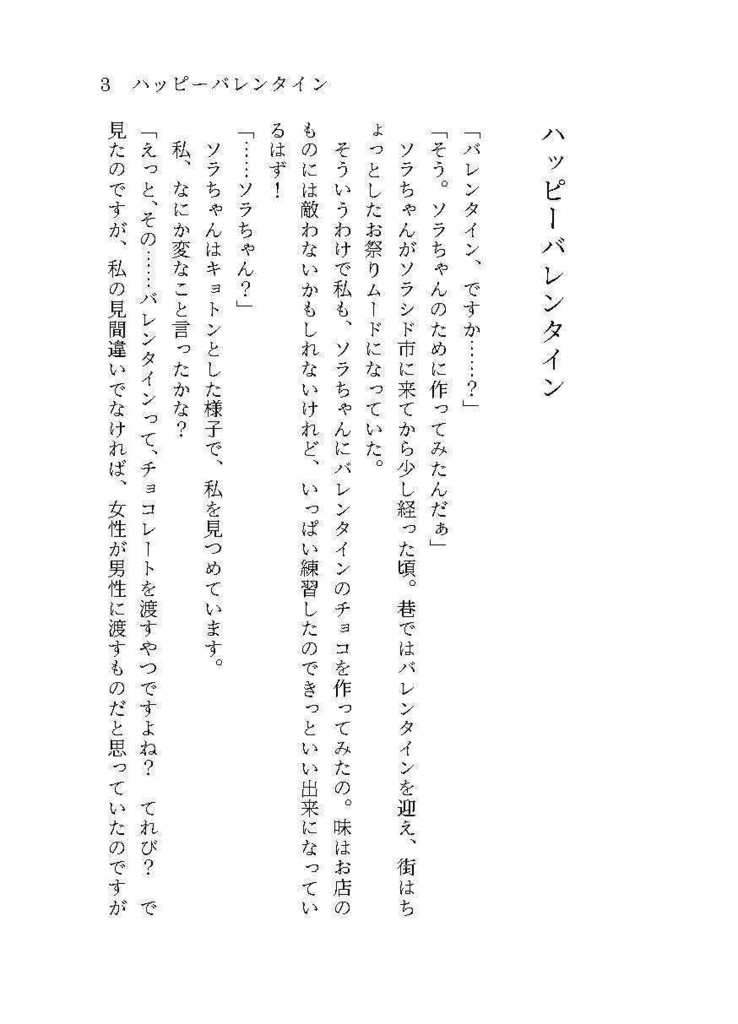 3 ハッピーバレンタイン
ハッピーバレンタイン
「バレンタイン、ですか……？」
「そう。ソラちゃんのために作ってみたんだぁ」
ソラちゃんがソラシド市に来てから少し経った頃。巷ではバレンタインを迎え、街はち
ょっとしたお祭りムードになっていた。
そういうわけで私も、ソラちゃんにバレンタインのチョコを作ってみたの。味はお店の
ものには敵わないかもしれないけれど、いっぱい練習したのできっといい出来になってい
るはず！
「……ソラちゃん？」
ソラちゃんはキョトンとした様子で、私を見つめています。
私、なにか変なこと言ったかな？
「えっと、その……バレンタインって、チョコレートを渡すやつですよね？　てれび？　で
見たのですが、私の見間違いでなければ、女性が男性に渡すものだと思っていたのですが